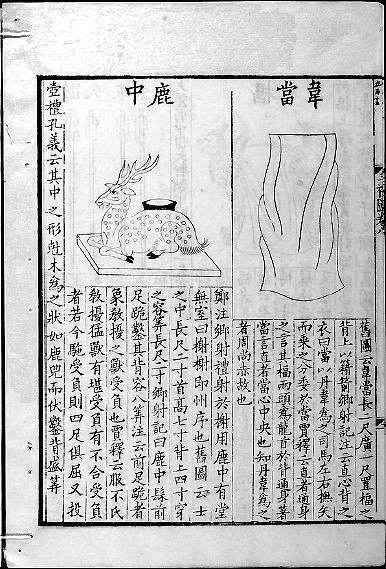 韋當
舊圖云直當長二尺廣一尺置楅之
背上以籍箭鄉射記注云直心背之
衣曰當以丹韋為之司馬左右撫矢
而乘之分委於當賈釋云直者通身
之言其楅兩頭為龍首於背通身著
當言直者當心中央也知丹韋為之
者周尚赤故也
鹿中
鄭注鄉射禮射於榭用鹿中有堂
無室曰榭榭即州序也舊圖云士
之中長尺二寸首高七寸背上四寸穿
之容筭長尺二寸鄉射記曰鹿中髹前
足跪鑿其背容八筭注云前足跪者
象教擾之獸受負也賈釋云服不氏
教擾猛獸有堪受負有不合受負
者若今駝受負則四足俱屈又投
壺禮孔義云其中之形刻木為之狀如鹿兕而伏鑿背盛筭